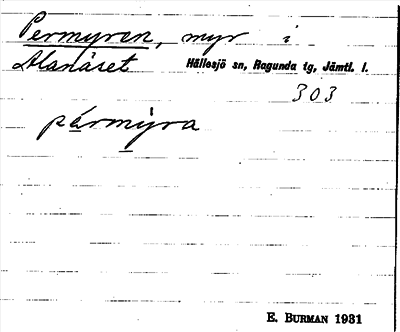 Permyren, myr i
Alanäset Hällesjö sn, Ragunda tg, Jämtl. l.
303
pérmýra
E. BURMAN 1931